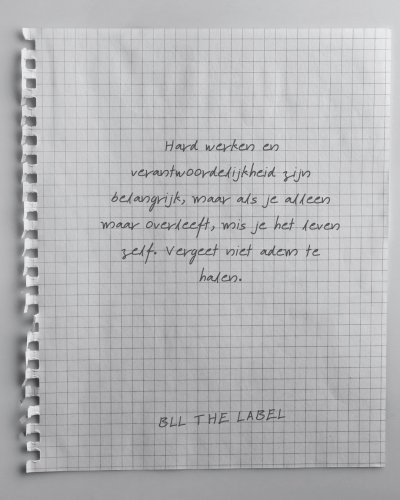 Hard werken en
verantwoordelijkheid zijn
belangrijk, maar als je alleen
maar overleeft, mis je het leven
zelf. Vergeet niet adem te
halen.
BLL THE LABEL